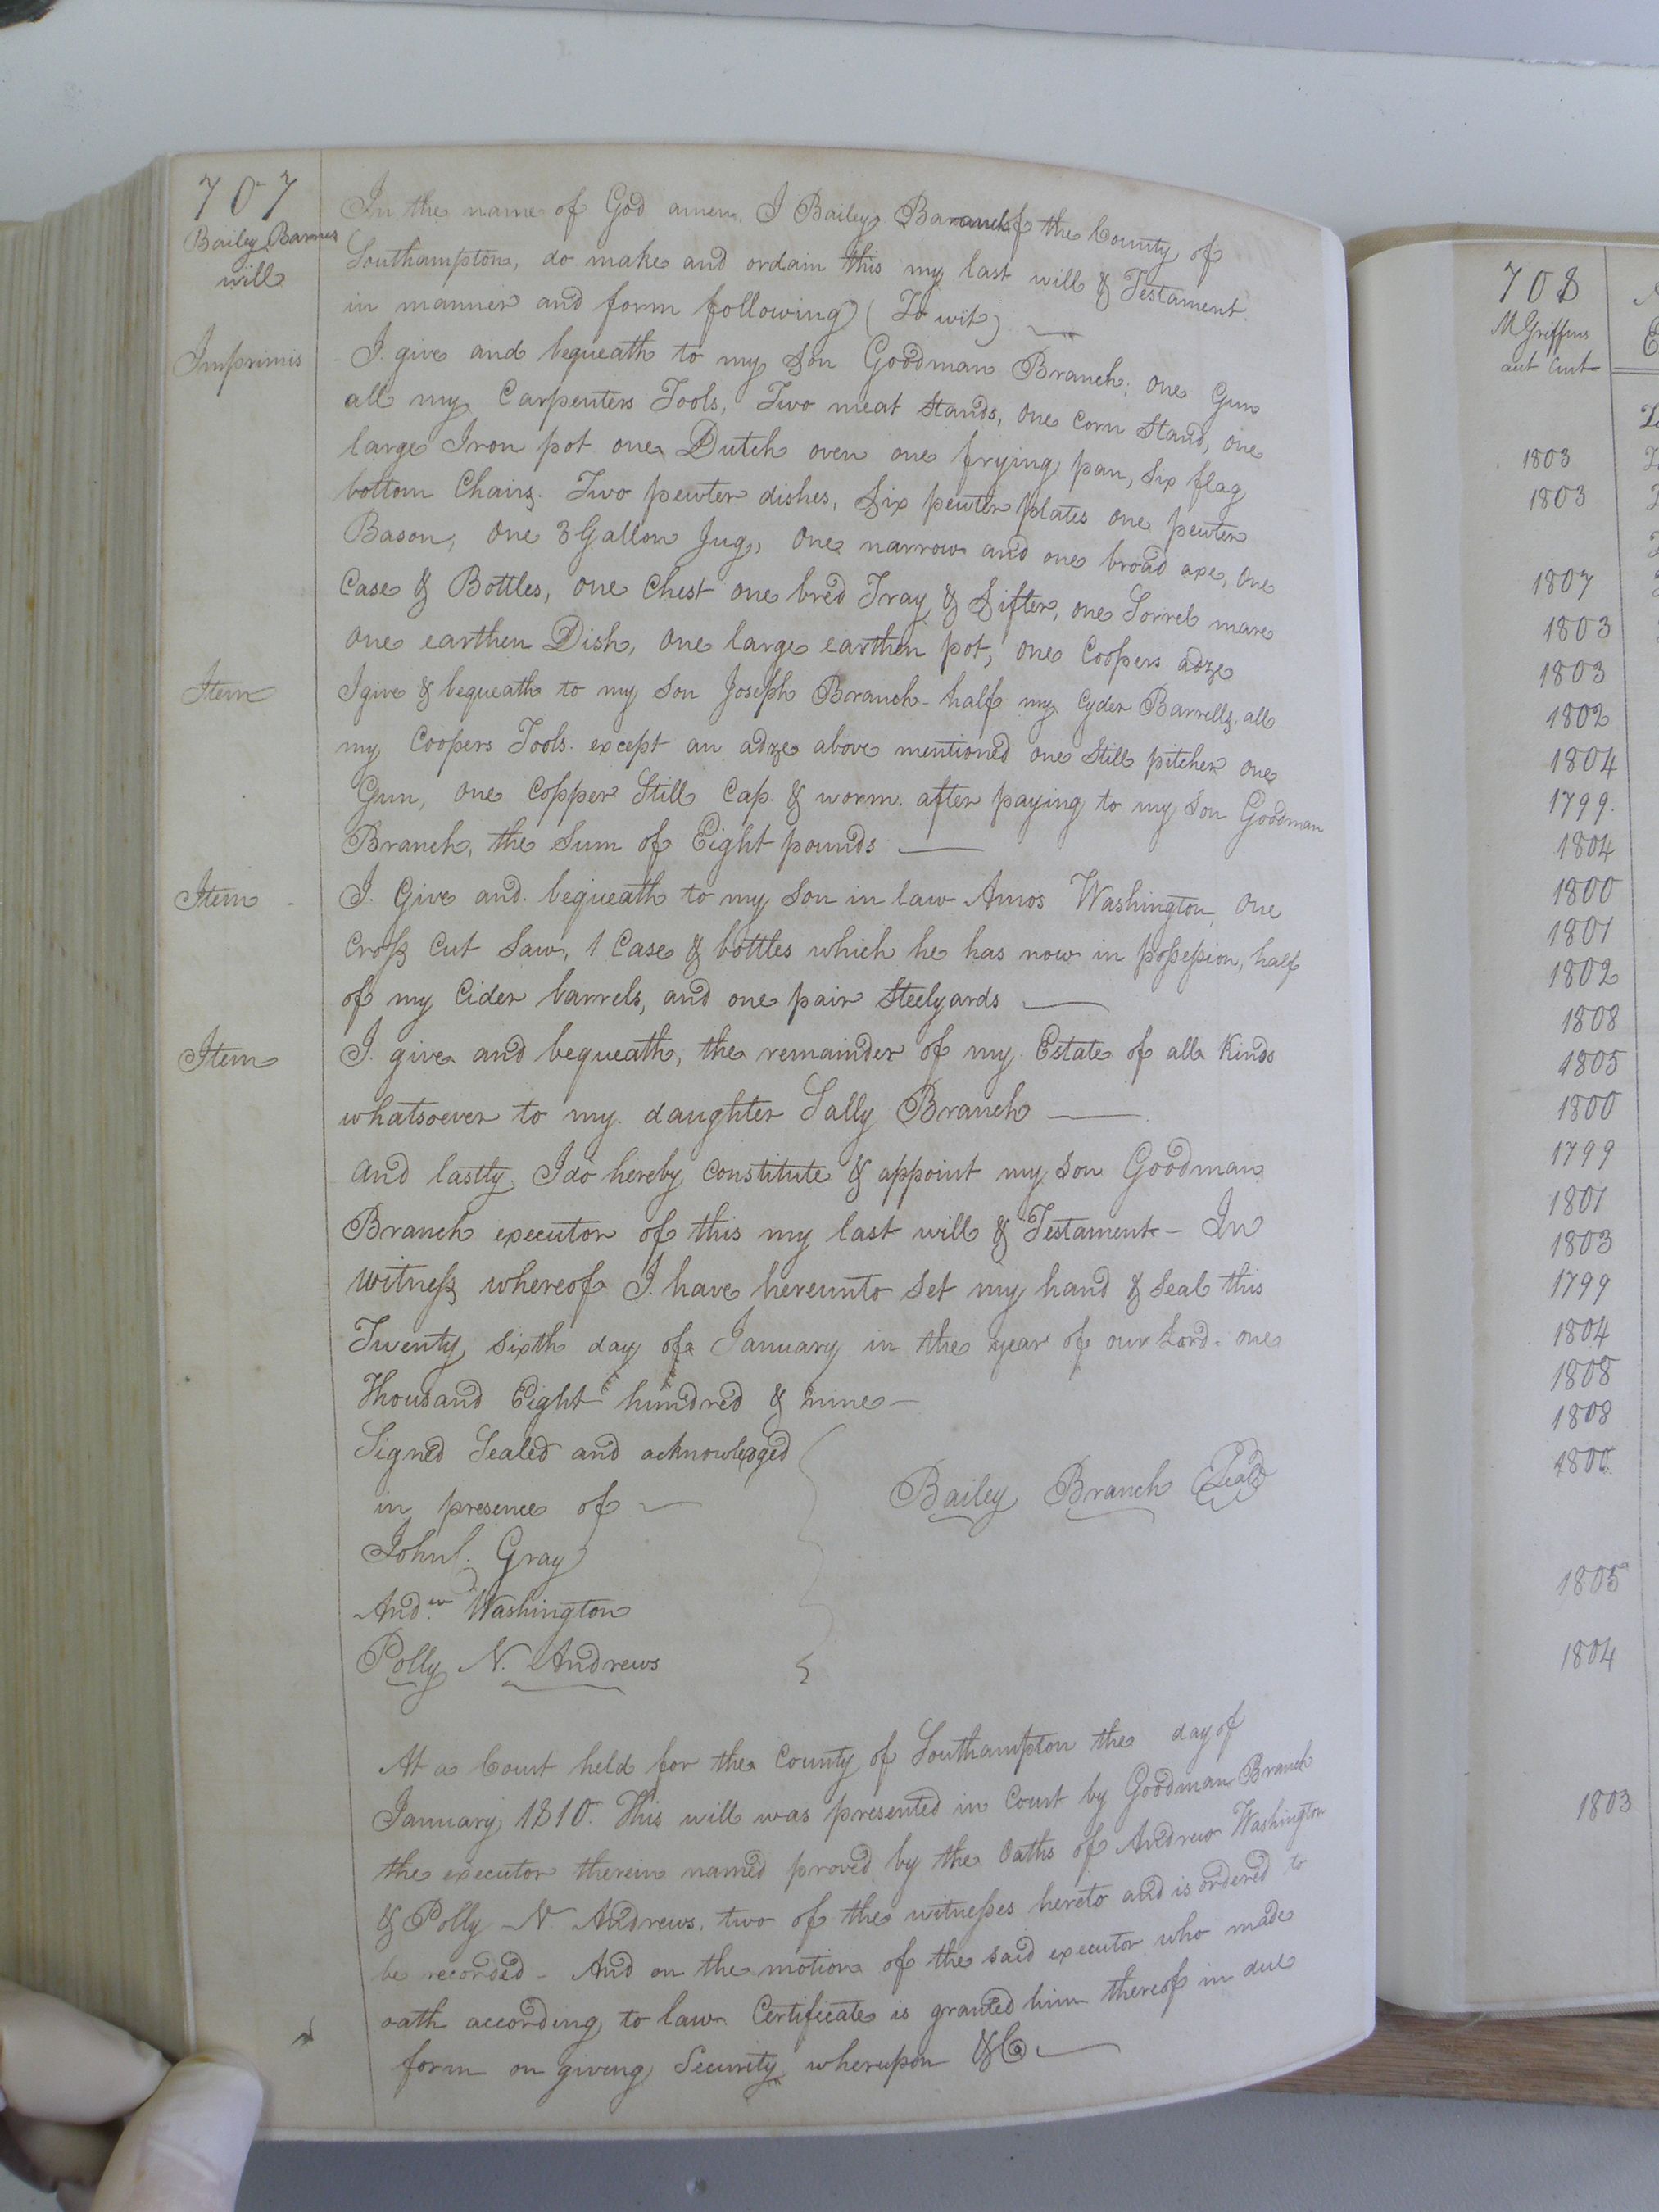 707
Bailey Barnes
will
In the name of God amen. I Bailey Branch of the County of
Southampton, do make and ordain this my last will & Testament
in manner and form following (To wit)
Imprimis
I give and bequeath to my Son Goodman Branch; one Gun
all my Carpenters Tools, Two meat Stands, one Corn Stand, one
large Iron pot one Dutch oven one frying pan, Six flag
bottom Chairs. Two pewter dishes, Six pewter plates one pewter
Bason, One 3 Gallon Jug, One narrow and one broad axe, One
Case & Bottles, one Chest one bred Tray & Sifter, one Sorrel mare
one earthen Dish, one large earthen pot, one Coopers adze
Item
I give & bequeath to my Son Joseph Branch - half my Cyder Barrells, all
my Coopers Tools. except an adze above mentioned one Still pitcher one
Gun, one Copper Still Cap. & worm. after paying to my Son Goodman
Branch, the Sum of Eight pounds
Item -
I. Give and bequeath to my Son in law Amos Washington, One
Cross Cut Saw, 1 Case & bottles which he has now in possession, half
of my Cider barrels, and one pair Steelyards
Item
I. give and bequeath, the remainder of my Estate of all Kinds
whatsoever to my daughter Sally Branch
And lastly, I do hereby Constitute & appoint my Son Goodman
Branch executor of this my last will & Testament - In
Witness whereof I have hereunto Set my hand & Seal this
Twenty Sixth day of January in the year of our Lord. one
Thousand Eight hundred & nine -
Signed Sealed and acknowledged
in presence of
Bailey Branch Seal
John Gray
And.w Washington
Polly N. Andrews
At a Court held for the County of Southampton the day of
January 1810. This will was presented in Court by Goodman Branch
the executor therein named proved by the Oaths of Andrew Washington
& Polly N. Andrews. two of the witnesses hereto and is ordered to
be recorded - And on the motion of the said executor who made
oath according to law Certificate is granted him thereof in due
form on giving Security wherupon &C
708
M Griffins
1803
1803
1807
1803
1803
1802
1804
1799.
1804
1800
1801
1802
1808
1805
1800
1799
1801
1803
1799
1804
1808
1808
1800
1805
1804
1803